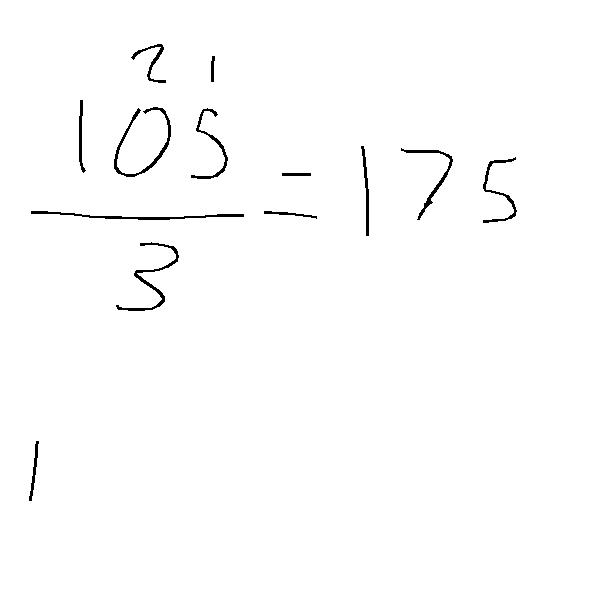 2 1
105
3
= 175
1